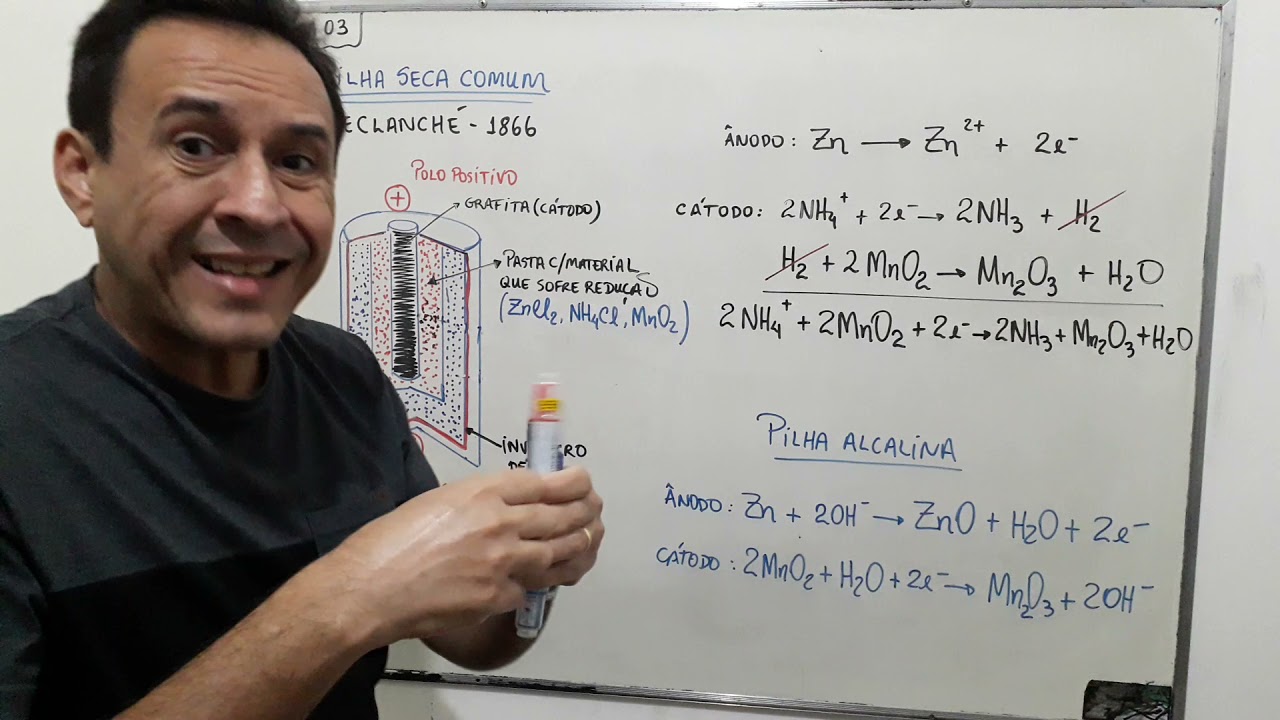 03
ILHA SECA COMUM
ECLANCHÉ - 1866
POLO POSITIVO
+
GRAFITA (CÁTODO)
PASTA C/ MATERIAL
QUE SOFRE REDUÇÃO
(ZnCl2, NH4Cl, MnO2)
ÂNODO: Zn → Zn²⁺ + 2e⁻
CÁTODO: 2NH₄⁺ + 2e⁻ → 2NH₃ + H₂
H₂ + 2MnO₂ → Mn₂O₃ + H₂O
2NH₄⁺ + 2MnO₂ + 2e⁻ → 2NH₃ + Mn₂O₃ + H₂O
PILHA ALCALINA
ÂNODO: Zn + 2OH⁻ → ZnO + H₂O + 2e⁻
CÁTODO: 2MnO₂ + H₂O + 2e⁻ → Mn₂O₃ + 2OH⁻